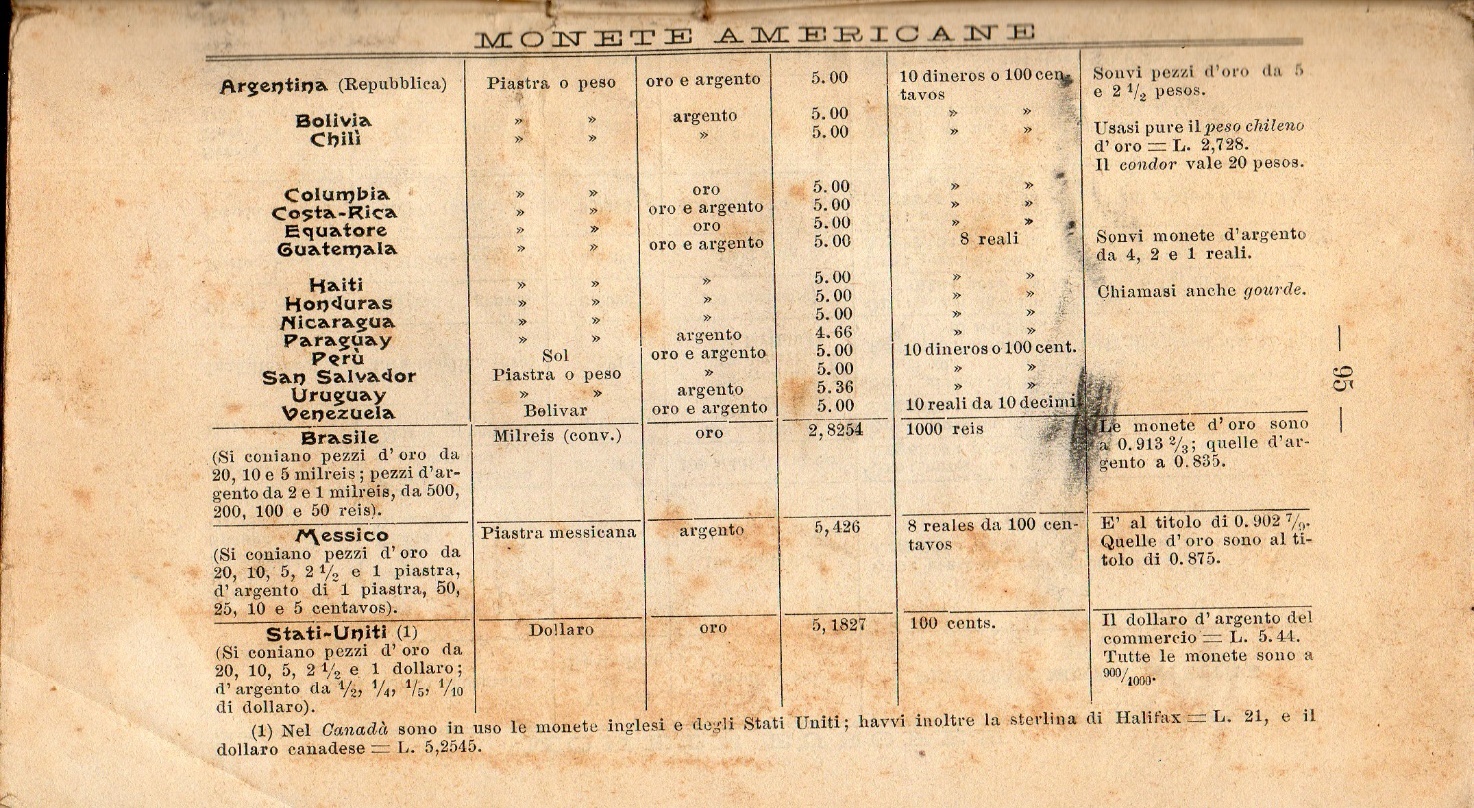 MONETE AMERICANE
Argentina (Repubblica) Piastra o peso oro e argento 5.00 10 dineros o 100 cen- Sonvi pezzi d'oro da 5
tavos e 2 1/2 pesos.
Bolivia » » argento 5.00 » »
Chilì » » » 5.00 » » Usasi pure il peso chileno
d'oro = L. 2,728.
Il condor vale 20 pesos.
Columbia » » oro 5.00 » »
Costa-Rica » » oro e argento 5.00 » »
Equatore » » oro 5.00 » »
Guatemala » » oro e argento 5.00 8 reali Sonvi monete d'argento
da 4, 2 e 1 reali.
Haiti » » » 5.00 » »
Honduras » » » 5.00 » » Chiamasi anche gourde.
Nicaragua » » » 5.00 » »
Paraguay » » argento 4.66 » »
Perù Sol oro e argento 5.00 10 dineros o 100 cent.
San Salvador Piastra o peso » 5.00 » »
Uruguay » » argento 5.36 » »
Venezuela Bolivar oro e argento 5.00 10 reali da 10 decimi
Brasile Milreis (conv.) oro 2,8254 1000 reis Le monete d'oro sono
(Si coniano pezzi d'oro da a 0.913 2/3; quelle d'ar-
20, 10 e 5 milreis; pezzi d'ar- gento a 0.835.
gento da 2 e 1 milreis, da 500,
200, 100 e 50 reis).
Messico Piastra messicana argento 5,426 8 reales da 100 cen- E' al titolo di 0.902 7/9.
(Si coniano pezzi d'oro da tavos Quelle d'oro sono al ti-
20, 10, 5, 2 1/2 e 1 piastra, tolo di 0.875.
d'argento di 1 piastra, 50,
25, 10 e 5 centavos).
Stati-Uniti (1) Dollaro oro 5,1827 100 cents. Il dollaro d'argento del
(Si coniano pezzi d'oro da commercio = L. 5.44.
20, 10, 5, 2 1/2 e 1 dollaro; Tutte le monete sono a
d'argento da 1/2, 1/4, 1/5, 1/10 900/1000.
di dollaro).
(1) Nel Canadà sono in uso le monete inglesi e degli Stati Uniti; havvi inoltre la sterlina di Halifax = L. 21, e il
dollaro canadese = L. 5,2545.
— 95 —